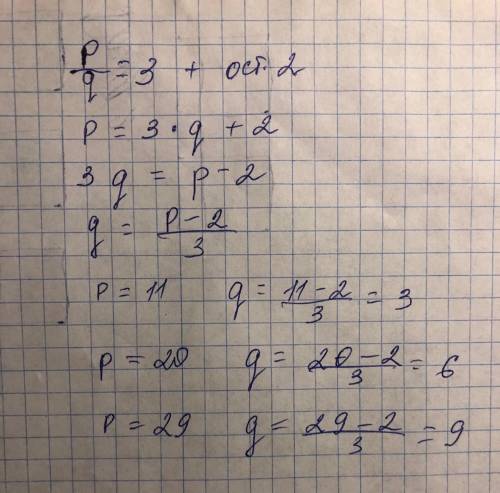 p/q = 3 + ост. 2
p = 3 · q + 2
3q = p - 2
q = (p - 2)/3
p = 11 q = (11 - 2)/3 = 3
p = 20 q = (20 - 2)/3 = 6
p = 29 q = (29 - 2)/3 = 9